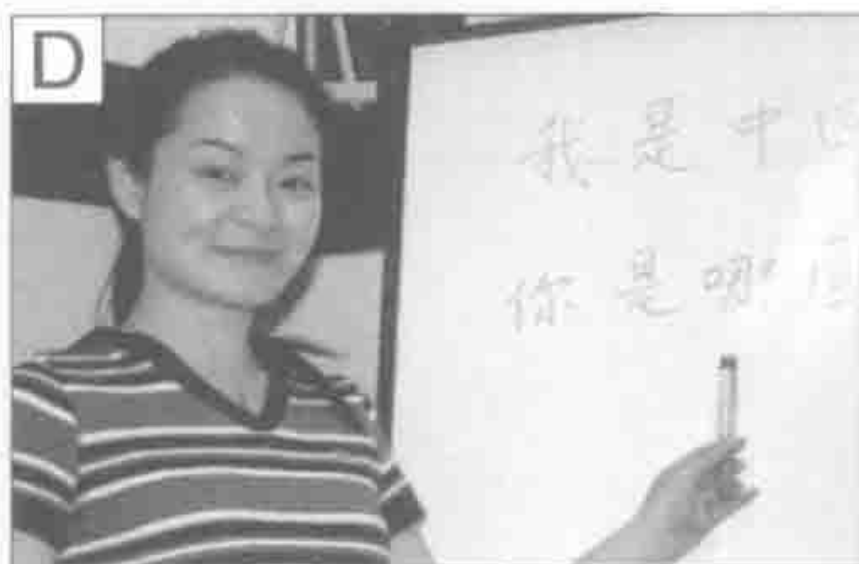 D
我是中
你是哪国